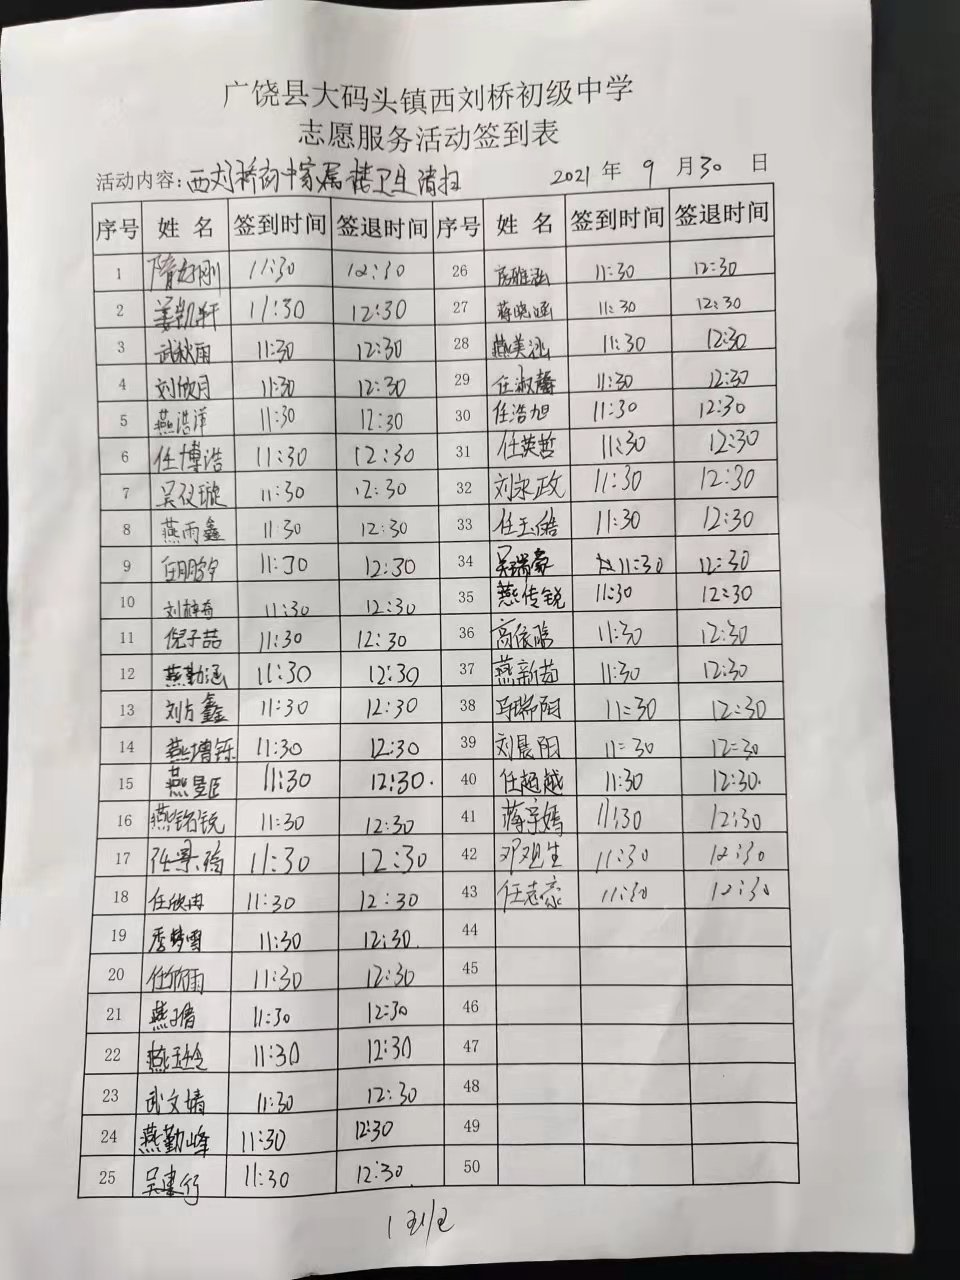 广饶县大码头镇西刘桥初级中学
志愿服务活动签到表
活动内容:西刘桥初中家属楼卫生清扫 2021年9月30日
序号 姓名 签到时间 签退时间 序号 姓名 签到时间 签退时间
1 11:30 12:30 26 11:30 12:30
2 姜凯轩 11:30 12:30 27 蒋晓涵 11:30 12:30
3 武秋雨 11:30 12:30 28 燕美泓 11:30 12:30
4 刘欣月 11:30 12:30 29 任淑静 11:30 12:30
5 燕浩洋 11:30 12:30 30 任浩旭 11:30 12:30
6 任博浩 11:30 12:30 31 任英哲 11:30 12:30
7 吴仪璇 11:30 12:30 32 刘永政 11:30 12:30
8 燕雨鑫 11:30 12:30 33 任玉皓 11:30 12:30
9 11:30 12:30 34 吴瑞豪 11:30 12:30
10 11:30 12:30 35 燕传锐 11:30 12:30
11 倪子喆 11:30 12:30 36 高依晗 11:30 12:30
12 燕勤涵 11:30 12:30 37 燕新茹 11:30 12:30
13 刘方鑫 11:30 12:30 38 马瑞阳 11:30 12:30
14 燕增铄 11:30 12:30 39 刘晨阳 11:30 12:30
15 燕昱臣 11:30 12:30. 40 任超越 11:30 12:30.
16 燕铭锐 11:30 12:30 41 蒋宗嫣 11:30 12:30
17 任景瑜 11:30 12:30 42 邓观生 11:30 12:30
18 任欣冉 11:30 12:30 43 任志豪 11:30 12:30
19 季梦雪 11:30 12:30. 44
20 任欣雨 11:30 12:30 45
21 11:30 12:30 46
22 燕玉玲 11:30 12:30 47
23 武文婧 11:30 12:30 48
24 燕勤峰 11:30 12:30 49
25 吴建行 11:30 12:30. 50